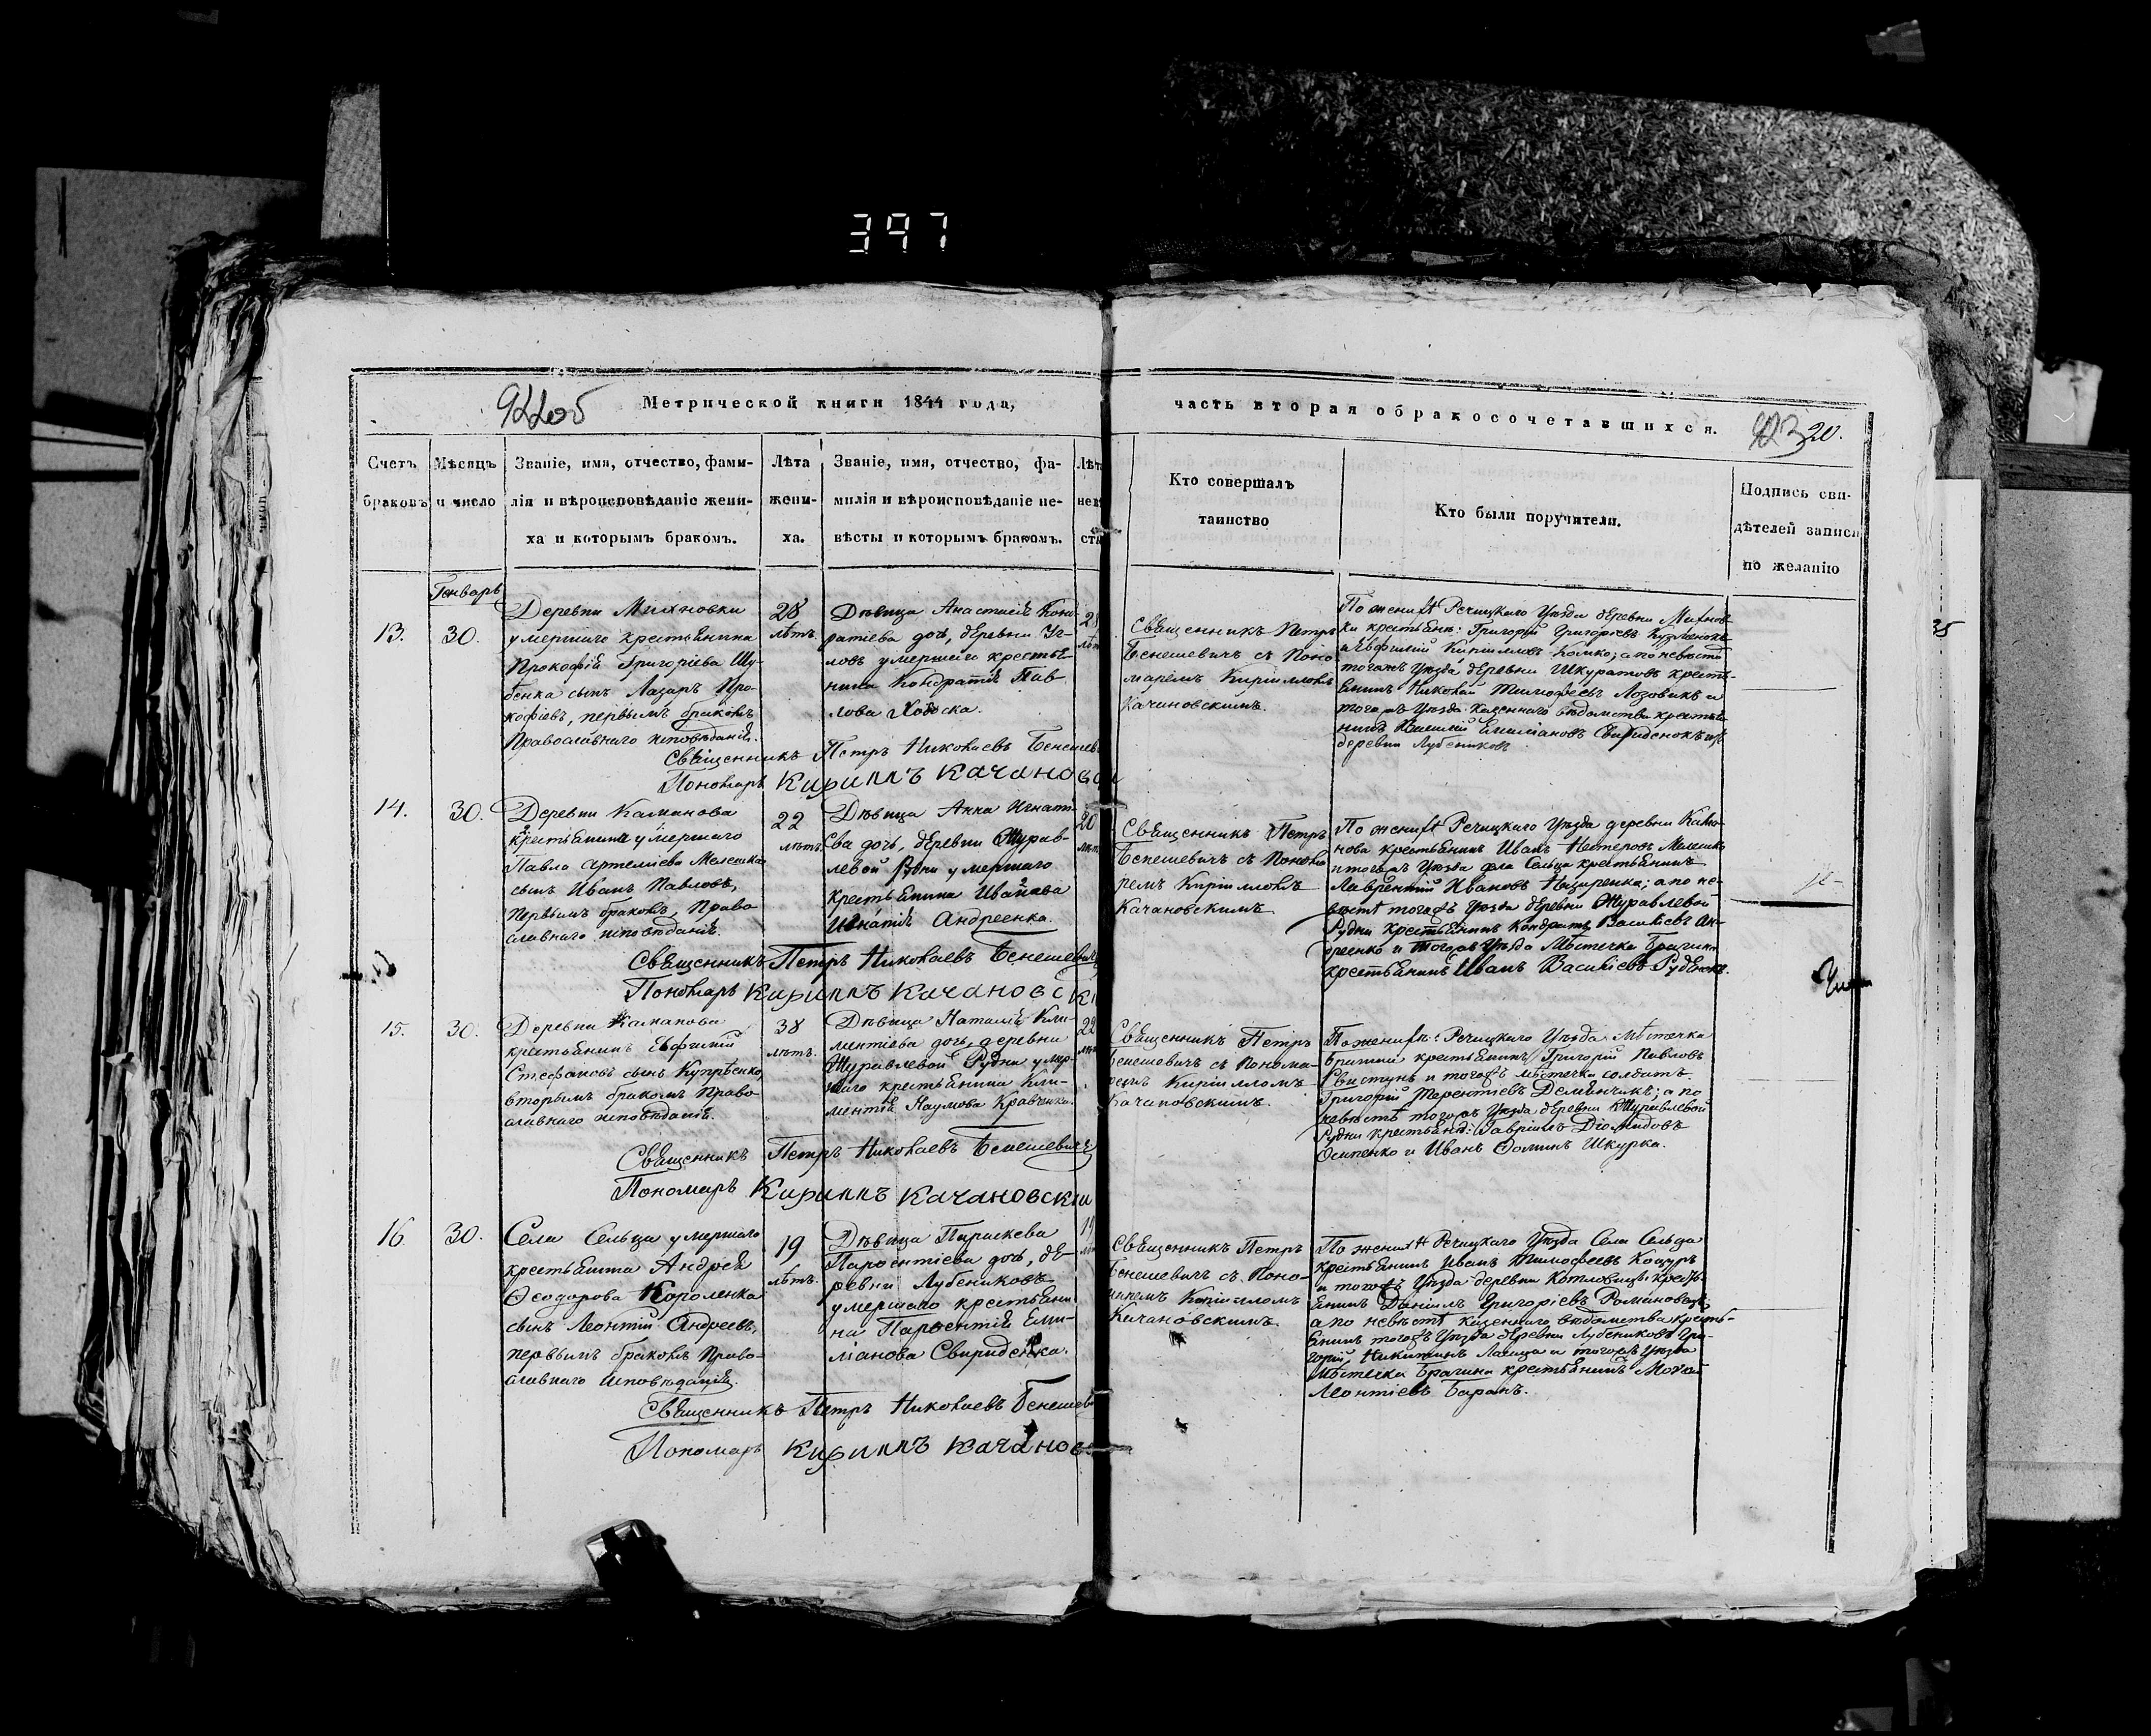 397
922 об
Метрической книги 1844 года,
часть вторая о бракосочетавшихся.
923 20.
Счетъ
браковъ
Мѣсяцъ
и число
Званіе, имя, отчество, фами-
лія и вѣроисповѣданіе жени-
ха и которымъ бракомъ.
Лѣта
жени-
ха.
Званіе, имя, отчество, фа-
милія и вѣроисповѣданіе не-
вѣсты и которымъ бракомъ.
Лѣт
нев
сты
Кто совершалъ
таинство
Кто были поручители.
Подпись сви-
дѣтелей записи
по желанію
Генварь
13.
30.
Деревни Михновки
умершаго крестьянина
Прокофія Григоріева Шу-
бенка сынъ Лазарь Про-
кофіевъ, первымъ бракомъ
Православнаго исповѣданія.
28
лѣтъ.
Дѣвица Анастасія Конд-
ратіева дочь, деревни
ловъ умершаго крестья-
нина Кондратія Пав-
лова
Священникъ Петръ
Бенешевичъ съ Поно
маремъ Кирилломъ
Качановскимъ.
По женихѣ Речицкаго Уѣзда деревни Михнов-
ки крестьяне: Григорій Григоріевъ
и Ефимій Кирилловъ а по невѣстѣ
тогожъ Уѣзда деревни Шкуратовъ кресть-
янинъ Николай Тимофеевъ Лозовикъ и
тогожъ Уѣзда Казеннаго вѣдомства крестья
нинъ Емилiановъ Свириденокъ изъ
деревни Лубениковъ
Священникъ Петръ Николаевъ Бенешев
Пономарь Кириллъ Качановски
14.
30.
Деревни Каманова
крестьянина умершаго
Павла Артеміева Мелешка
сынъ Иванъ Павловъ,
первымъ бракомъ, Право
славнаго исповѣданія.
22
лѣтъ.
Дѣвица Анна Игнатi-
ева дочь, деревни Журав-
левой Рудни умершаго
крестьянина Иванова
Игнатія Андреенка.
20
лѣт
Священникъ Петръ
Бенешевичъ съ Понома
ремъ Кирилломъ
Качановскимъ
По женихѣ Речицкаго Уѣзда деревни Кама-
нова крестьянинъ Иванъ Нестеровъ Мелешко
и тогожъ Уѣзда села Сельца крестьянинъ
Лаврентій Ивановъ Назаренко; а по не-
вѣстѣ тогожъ Уѣзда деревни Журавлевой
Рудни крестьянинъ Кондратъ Василіевъ Ан-
дреенко и тогожъ Уѣзда Мѣстечка Брагина
крестьянинъ Иванъ Василіевъ Руденокъ.
Священникъ Петръ Николаевъ Бенешевичъ
Пономарь Кириллъ Качановскі
15.
30.
Деревни Каманова
крестьянинъ Евфимій
Стефановъ сынъ Купрѣенко,
вторымъ бракомъ Право
славнаго исповѣданія.
38
лѣтъ.
Дѣвица Наталія Кли-
ментіева дочь, деревни
Журавлевой Рудни умер-
шаго крестьянина Кли-
ментія Наумова Кравченка.
22
лѣт
Священникъ Петръ
Бенешевичъ съ Понома-
ремъ Кирилломъ
Качановскимъ.
По женихѣ: Речицкаго Уѣзда Мѣстечка
Брагина крестьянинъ Григорій Павловъ
Свистунъ и тогожъ мѣстечка солдатъ
Григорій Терентіевъ Деменчикъ; а по
невѣстѣ тогожъ Уѣзда деревни Журавлевой
Рудни крестьяне: Гавріилъ Діомидовъ
Осипенко и Иванъ Фоминъ Шкурка.
Священникъ Петръ Николаевъ Бенешевичъ
Пономарь Кириллъ Качановскій
16.
30.
Села Сельца умершаго
крестьянина Андрея
Ѳеодорова Короленка
сынъ Леонтій Андреевъ,
первымъ бракомъ Право-
славнаго исповѣданія.
19
лѣтъ.
Дѣвица Параскева
Парфентіева дочь, де-
ревни Лубениковъ
умершаго крестьяни
на Парфентія Еми-
ліанова Свириденка.
19
лѣт
Священникъ Петръ
Бенешевичъ съ Поно-
маремъ Кирилломъ
Качановскимъ.
По женихѣ Речицкаго Уѣзда Села Сельца
крестьянинъ Иванъ Тимофеевъ Коцуръ
и тогожъ Уѣзда деревни Котловицы кресть-
янинъ Даніилъ Григоріевъ Романовецъ;
а по невѣстѣ казеннаго вѣдомства кресть-
янинъ тогожъ Уѣзда деревни Лубениковъ Гри-
горій Никитинъ и тогожъ Уѣзда
Мѣстечка Брагина крестьянинъ Мокей
Леонтіевъ Баранъ.
Священникъ Петръ Николаевъ Бенешев
Пономарь Кириллъ Качановс